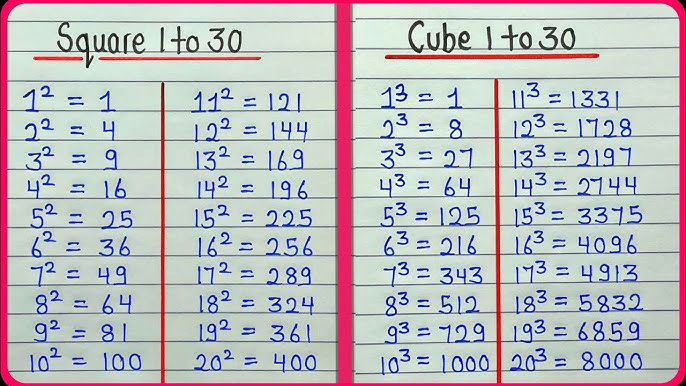 Square 1 to 30
1² = 1
2² = 4
3² = 9
4² = 16
5² = 25
6² = 36
7² = 49
8² = 64
9² = 81
10² = 100
11² = 121
12² = 144
13² = 169
14² = 196
15² = 225
16² = 256
17² = 289
18² = 324
19² = 361
20² = 400
Cube 1 to 30
1³ = 1
2³ = 8
3³ = 27
4³ = 64
5³ = 125
6³ = 216
7³ = 343
8³ = 512
9³ = 729
10³ = 1000
11³ = 1331
12³ = 1728
13³ = 2197
14³ = 2744
15³ = 3375
16³ = 4096
17³ = 4913
18³ = 5832
19³ = 6859
20³ = 8000